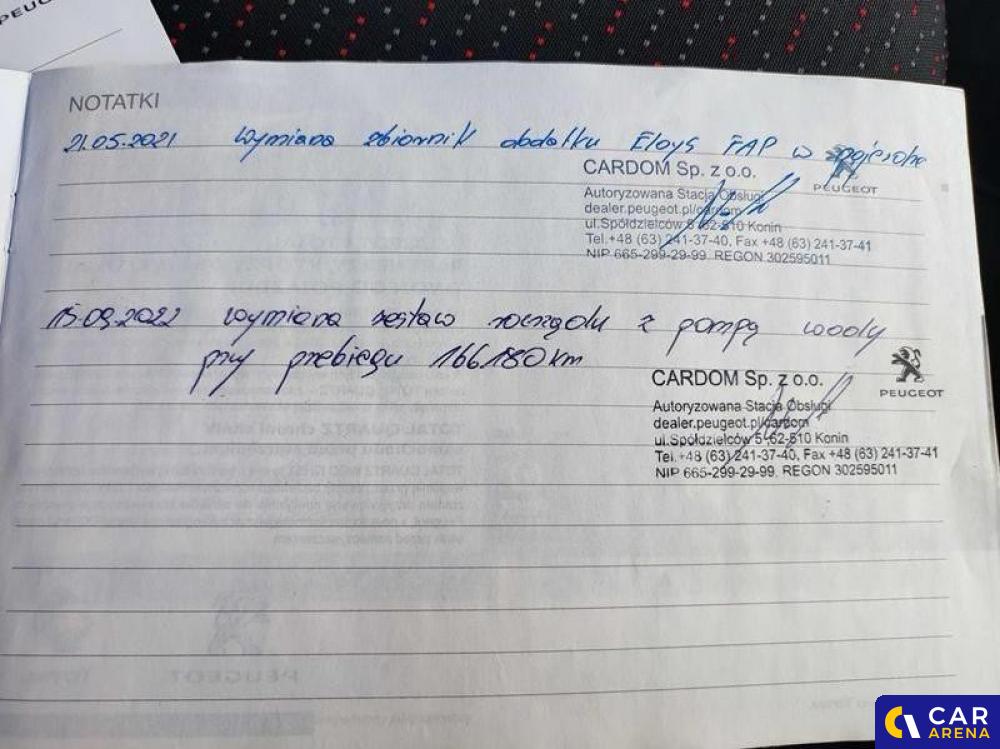 PEUG
NOTATKI
21.05.2021 wymiana zbiornik dodatku Eloys FAP w pojeździe
CARDOM Sp. z o.o.
PEUGEOT
Autoryzowana Stacja Obsługi
dealer.peugeot.pl/cardom
ul.Spółdzielców 5 62-510 Konin
Tel.+48 (63) 241-37-40, Fax +48 (63) 241-37-41
NIP 665-299-29-99. REGON 302595011
15.09.2022 wymiana zestaw rozrządu z pompą wody
przy przebiegu 166180 km
CARDOM Sp. z o.o.
PEUGEOT
Autoryzowana Stacja Obsługi
dealer.peugeot.pl/cardom
ul.Spółdzielców 5 62-510 Konin
Tel.+48 (63) 241-37-40, Fax +48 (63) 241-37-41
NIP 665-299-29-99. REGON 302595011
PEUGEOT
CAR
ARENA